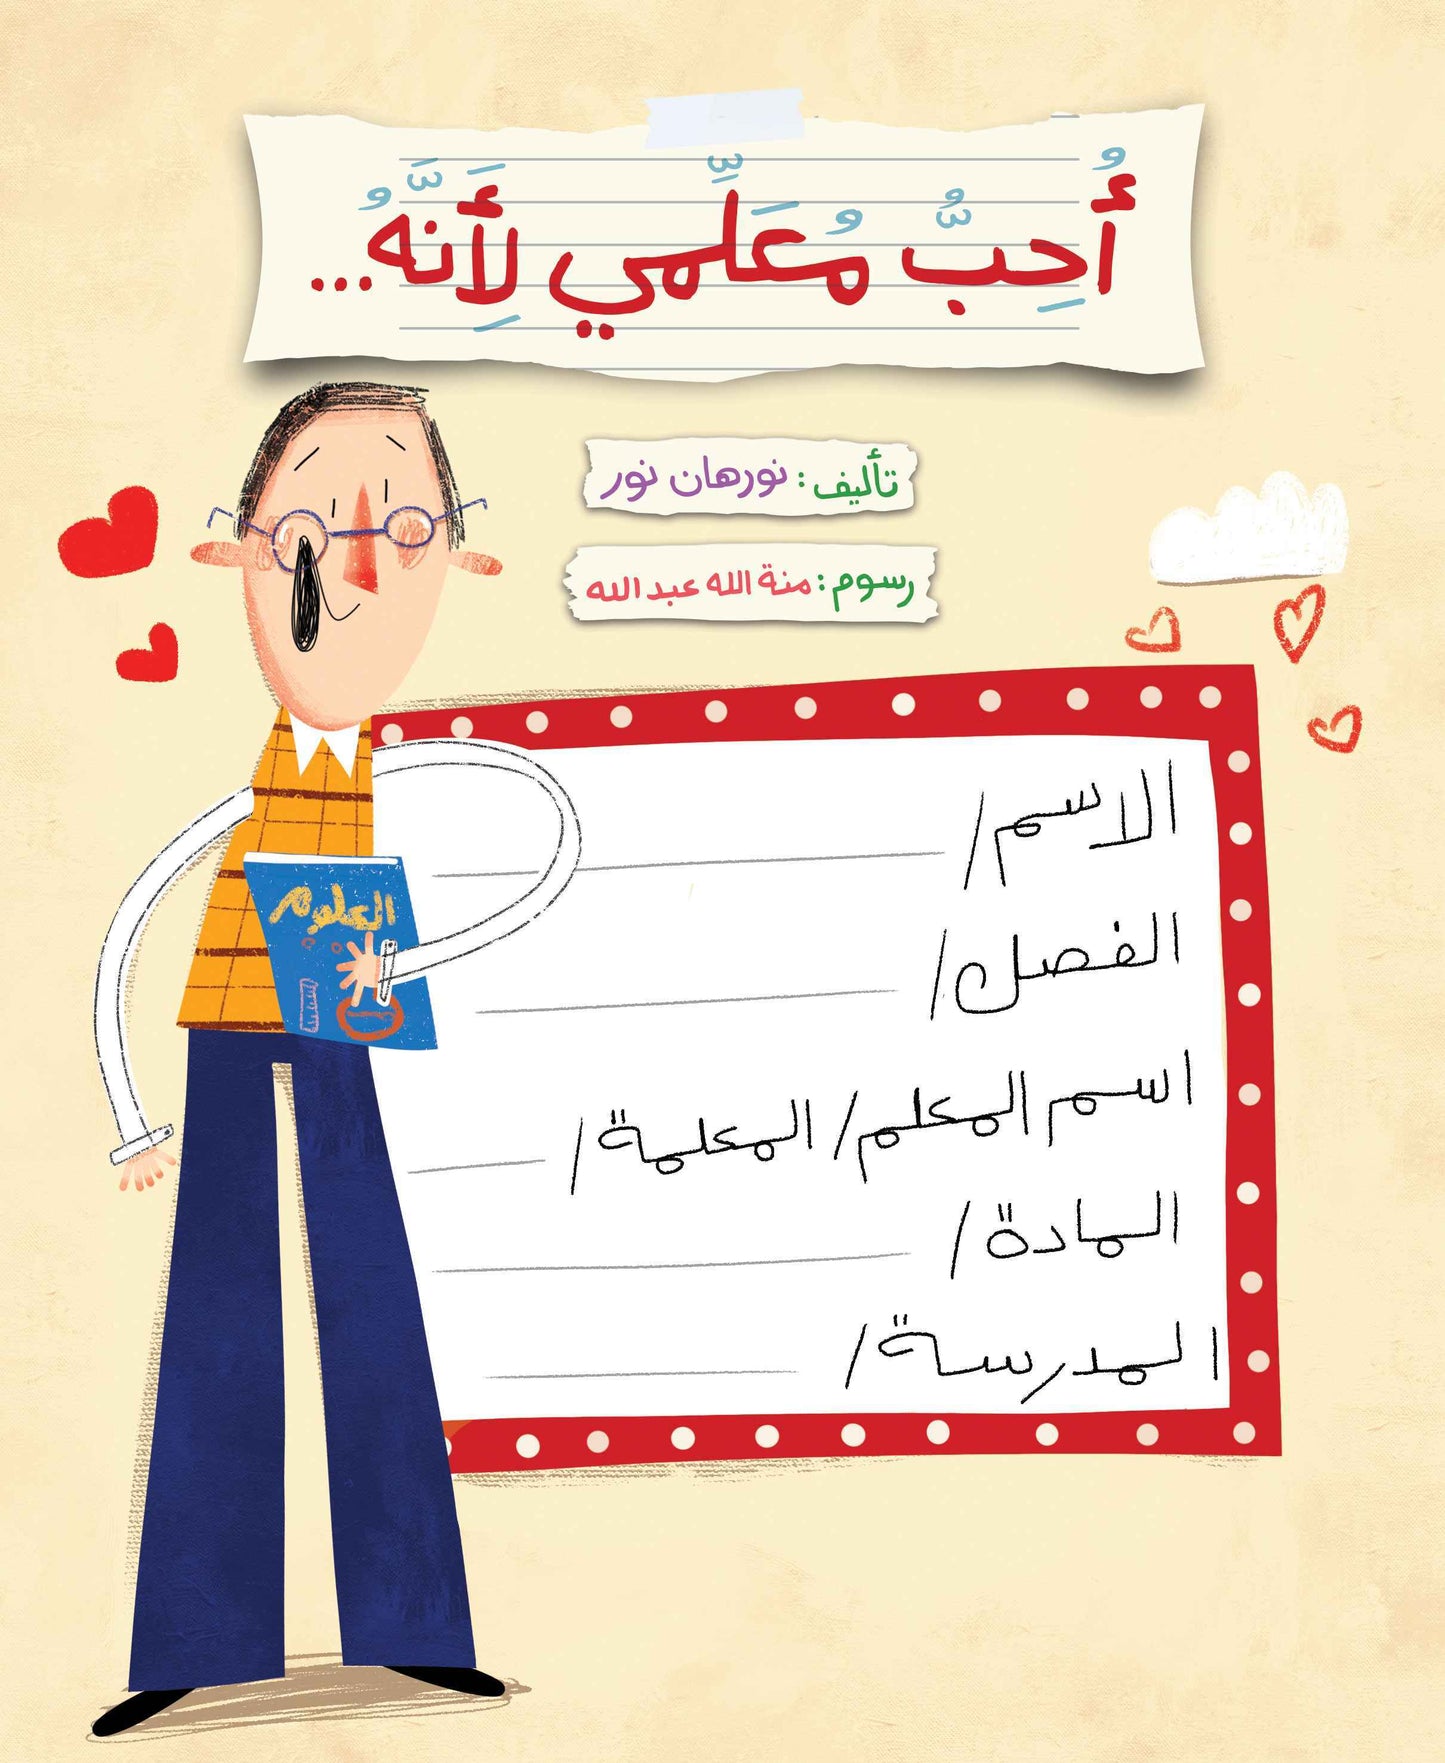 أُحِبُّ مُعَلِّمي لِأَنَّهُ...
تأليف: نورهان نور
رسوم: منة الله عبد الله
الاسم/
الفصل/
اسم المعلم/ المعلمة/
المادة/
المدرسة/
العلوم